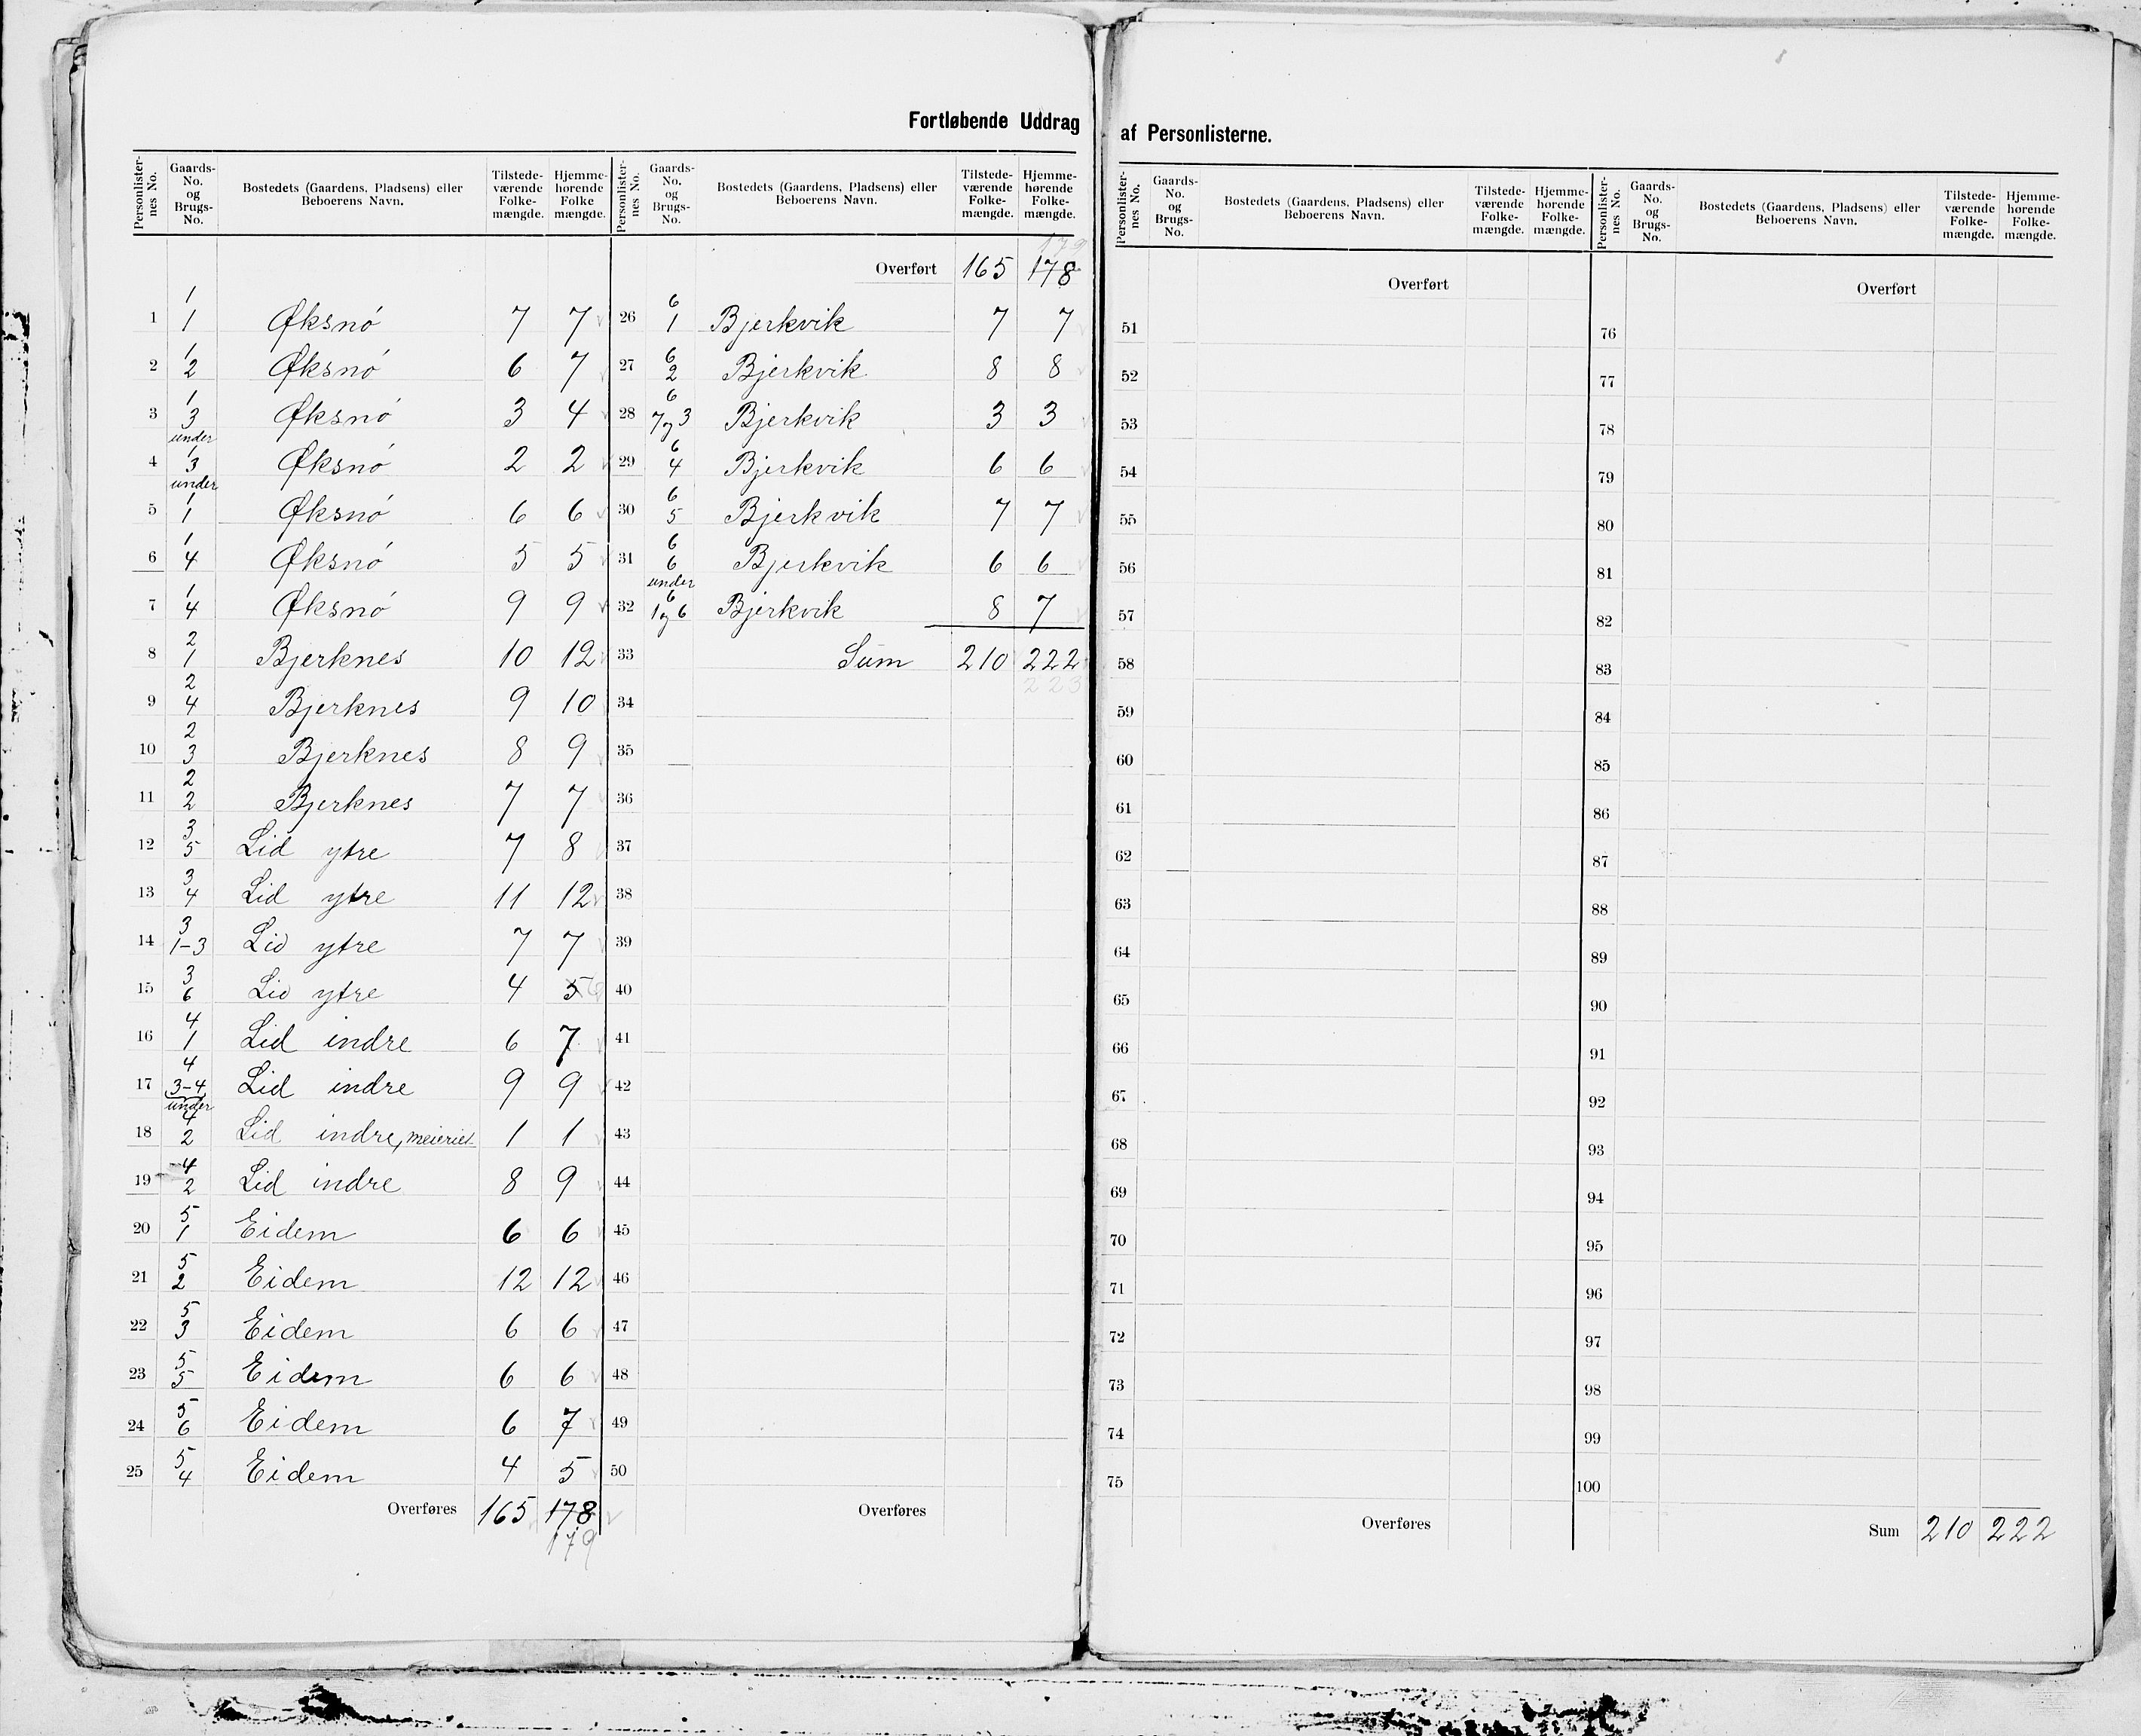 Fortløbende Uddrag af Personlisterne.
Personlister-nes No. Gaards-No. og Brugs-No. Bostedets (Gaardens, Pladsens) eller Beboerens Navn. Tilstede-værende Folke-mængde. Hjemme-hørende Folke mængde.
1 1/1 Øksnó 7 7
2 1/2 Øksnó 6 7
3 1/3 Øksnó 3 4
4 under 1/3 Øksnó 2 2
5 under 1/1 Øksnó 6 6
6 1/4 Øksnó 5 5
7 1/4 Øksnó 9 9
8 2/1 Bjerknes 10 12
9 2/4 Bjerknes 9 10
10 2/3 Bjerknes 8 9
11 2/2 Bjerknes 7 7
12 3/5 Lid ytre 7 8
13 3/4 Lid ytre 11 12
14 3/1-3 Lid ytre 7 7
15 3/6 Lid ytre 4 5 6
16 4/1 Lid indre 6 7
17 4/3-4 Lid indre 9 9
18 under 4/2 Lid indre, meieriet 1 1
19 4/2 Lid indre 8 9
20 5/1 Eidem 6 6
21 5/2 Eidem 12 12
22 5/3 Eidem 6 6
23 5/5 Eidem 6 6
24 5/6 Eidem 6 7
25 5/4 Eidem 4 5
Overføres 165 178
179
Personlister-nes No. Gaards-No. og Brugs-No. Bostedets (Gaardens, Pladsens) eller Beboerens Navn. Tilstede-værende Folke-mængde. Hjemme-hørende Folke-mængde.
179
Overført 165 178
26 6/1 Bjerkvik 7 7
27 6/2 Bjerkvik 8 8
28 6/7 og 3 Bjerkvik 3 3
29 6/4 Bjerkvik 6 6
30 6/5 Bjerkvik 7 7
31 6/6 Bjerkvik 6 6
32 under 6/1 og 6 Bjerkvik 8 7
33 Sum 210 222
223
34
35
36
37
38
39
40
41
42
43
44
45
46
47
48
49
50
Overføres
Personlister-nes No. Gaards-No. og Brugs-No. Bostedets (Gaardens, Pladsens) eller Beboerens Navn. Tilstede-værende Folke-mængde. Hjemme-hørende Folke-mængde.
Overført
51
52
53
54
55
56
57
58
59
60
61
62
63
64
65
66
67
68
69
70
71
72
73
74
75
Overføres
Personlister-nes No. Gaards-No. og Brugs-No. Bostedets (Gaardens, Pladsens) eller Beboerens Navn. Tilstede-værende Folke-mængde. Hjemme-hørende Folke-mængde.
Overført
76
77
78
79
80
81
82
83
84
85
86
87
88
89
90
91
92
93
94
95
96
97
98
99
100
Sum 210 222